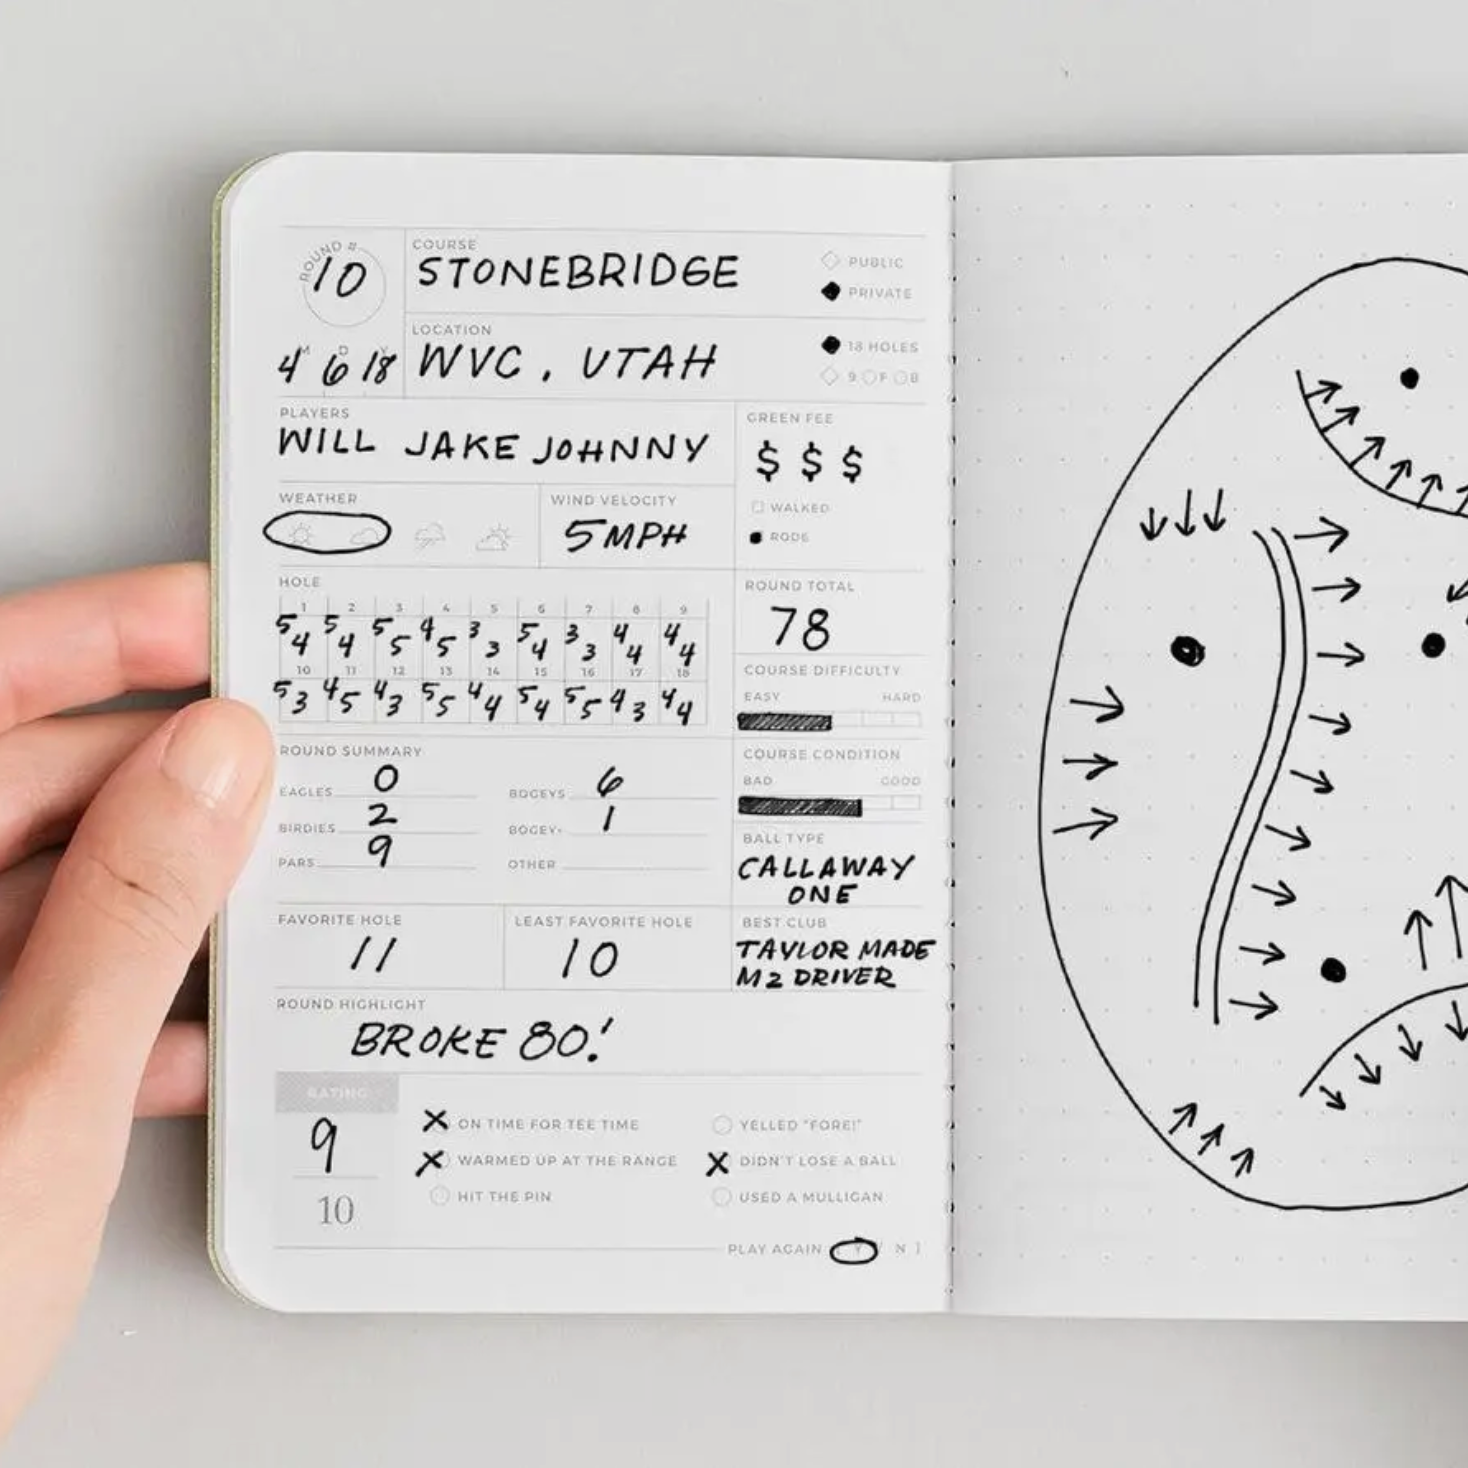 ROUND #
10
COURSE
STONEBRIDGE
PUBLIC
PRIVATE
M D Y
4 6 18
LOCATION
WVC, UTAH
18 HOLES
9 F B
PLAYERS
WILL JAKE JOHNNY
GREEN FEE
$ $ $
WALKED
RODE
WEATHER
WIND VELOCITY
5MPH
HOLE
1 2 3 4 5 6 7 8 9
5 4 5 4 5 5 4 5 3 3 5 4 3 3 4 4 4 4
10 11 12 13 14 15 16 17 18
5 3 4 5 4 3 5 5 4 4 5 4 5 5 4 3 4 4
ROUND TOTAL
78
COURSE DIFFICULTY
EASY HARD
ROUND SUMMARY
EAGLES 0
BIRDIES 2
PARS 9
BOGEYS 6
BOGEY+ 1
OTHER
COURSE CONDITION
BAD GOOD
BALL TYPE
CALLAWAY
ONE
FAVORITE HOLE
11
LEAST FAVORITE HOLE
10
BEST CLUB
TAYLOR MADE
M2 DRIVER
ROUND HIGHLIGHT
BROKE 80!
RATING
9
10
ON TIME FOR TEE TIME
WARMED UP AT THE RANGE
HIT THE PIN
YELLED "FORE!"
DIDN'T LOSE A BALL
USED A MULLIGAN
PLAY AGAIN [ Y / N ]